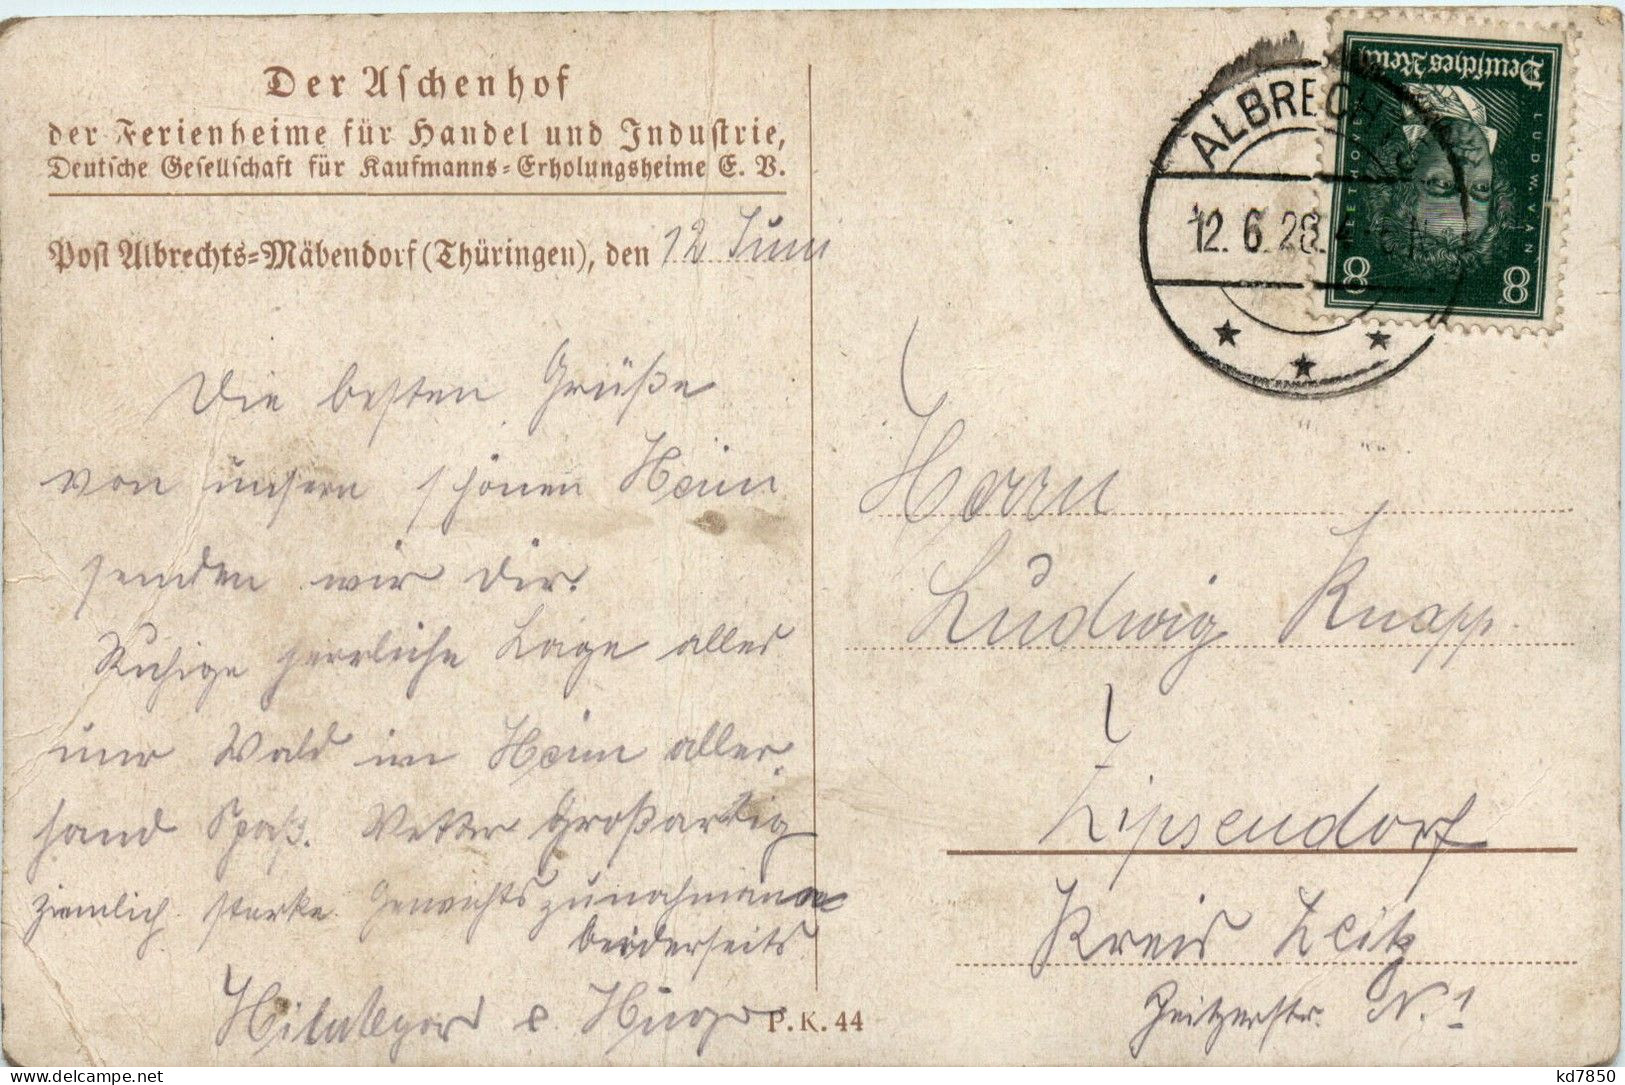 Der Aschenhof
der Ferienheime für Handel und Industrie,
Deutsche Gesellschaft für Kaufmanns-Erholungsheime E. V.
Post Albrechts-Mäbendorf (Thüringen), den 12 Juni
Die besten Grüße
von unsern schönen Heim
senden wir Dir.
Ruhige herrliche Lage alles
nur Wald im Heim aller-
hand Spaß. Wetter Großartig
ziemlich starke Gewichtszunahmen
beiderseits
Hugo
P.K. 44
ALBRECHTS
12. 6. 28. 4
Deutsches Reich
LUDW. VAN
BEETHOVEN
8 8
Herrn
Ludwig Knapp
Zipsendorf
Kreis Zeitz
Zeitzerstr. N. 1
kd7850